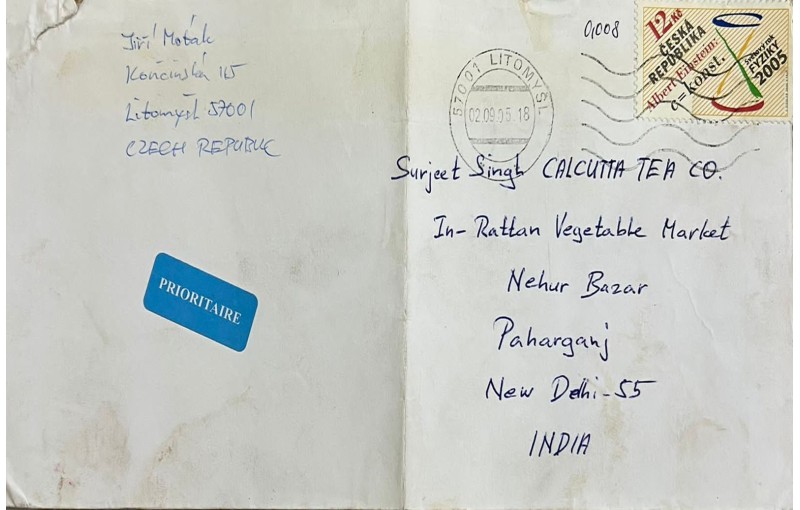 Jiří Moťák
Končinská 115
Litomyšl 57001
CZECH REPUBLIC
PRIORITAIRE
57001 LITOMYŠL
02.09.05.18
0,008
12 Kč
ČESKÁ
REPUBLIKA
Albert Einstein:
c = konst.
Světový rok
FYZIKY
2005
Surjeet Singh CALCUTTA TEA CO.
In-Rattan Vegetable Market
Nehur Bazar
Paharganj
New Delhi-55
INDIA